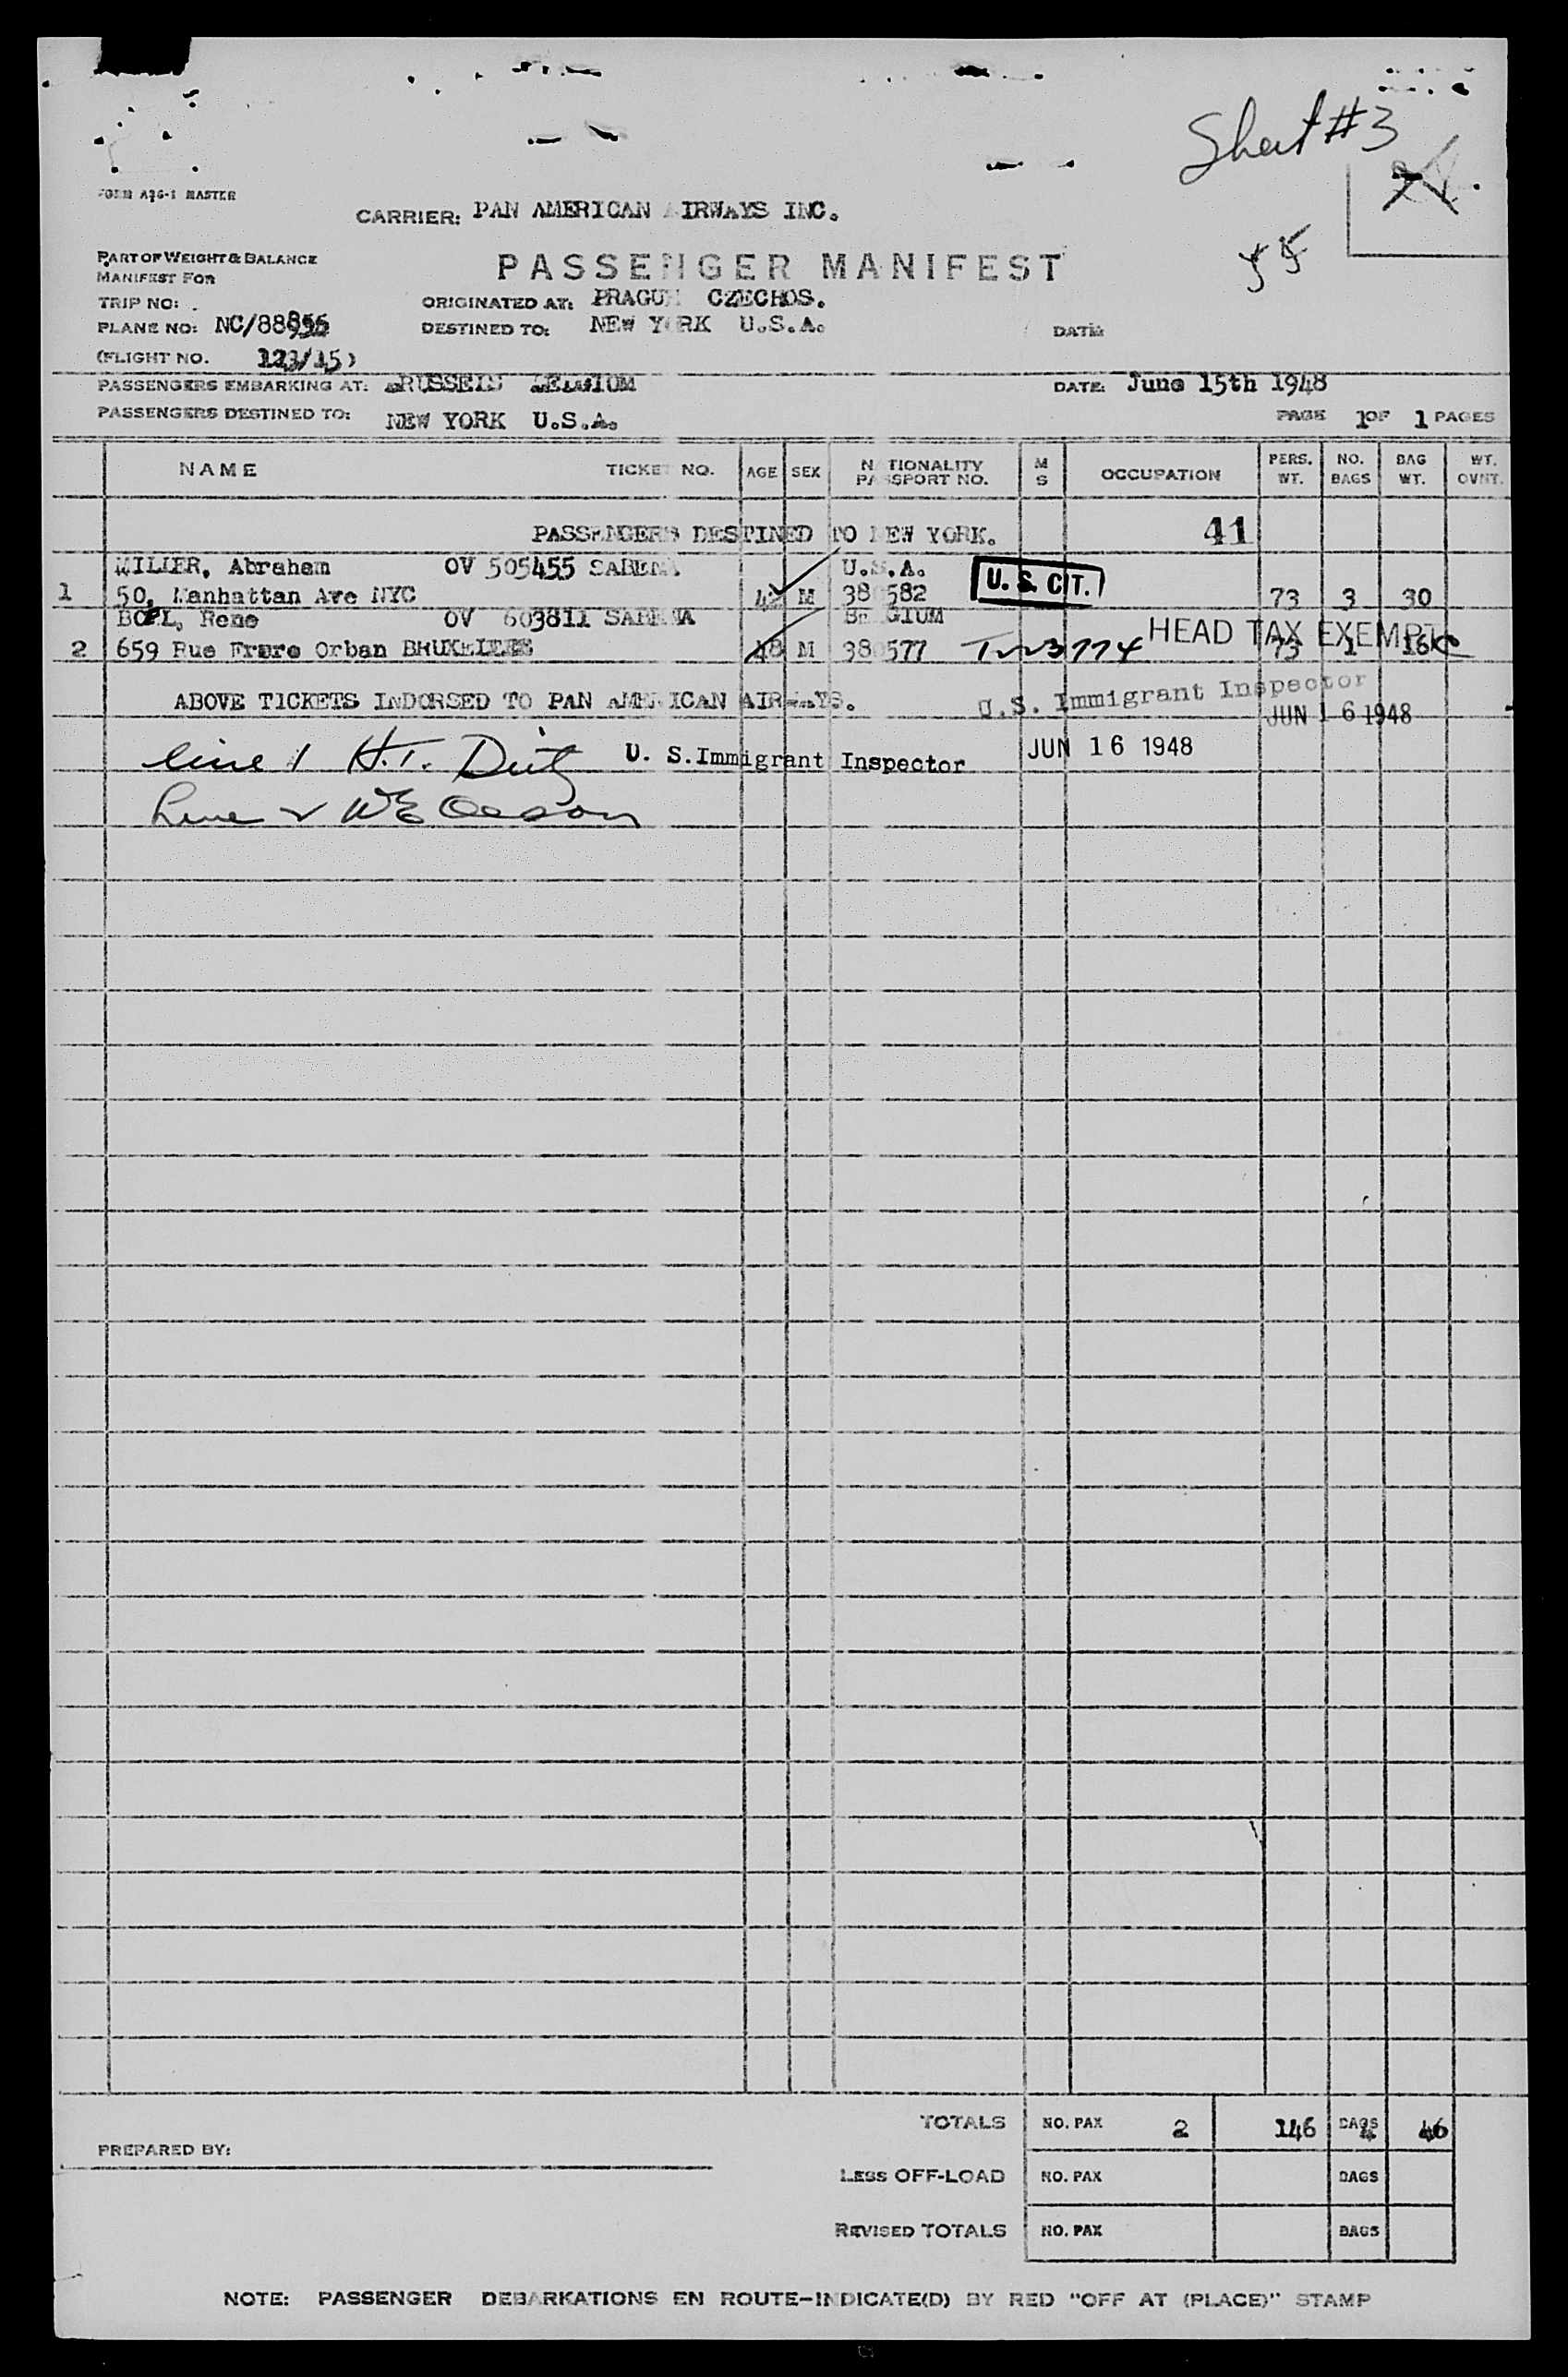 Sheet #3
FORM A36-1 MASTER
CARRIER: PAN AMERICAN AIRWAYS INC.
55
PART OF WEIGHT & BALANCE
MANIFEST FOR
PASSENGER MANIFEST
TRIP NO: .
ORIGINATED AT: PRAGUE CZECHOS.
PLANE NO: NC/88856
DESTINED TO: NEW YORK U.S.A.
DATE:
(FLIGHT NO. 123/15)
PASSENGERS EMBARKING AT: BRUSSELS BELGIUM
DATE: June 15th 1948
PASSENGERS DESTINED TO: NEW YORK U.S.A.
PAGE 1 OF 1 PAGES
NAME TICKET NO. AGE SEX NATIONALITY PASSPORT NO. M S OCCUPATION PERS. WT. NO. BAGS BAG WT. WT. OVNT.
PASSENGERS DESTINED TO NEW YORK. 41
MILLER, Abraham OV 505455 SABENA U.S.A. U. S. CIT.
1 50, Manhattan Ave NYC 42 M 380582 73 3 30
OV 603811 SABENA BELGIUM HEAD TAX EXEMPT
2 659 Rue Frere Orban BRUXELLES 48 M 380577 73 1 16
ABOVE TICKETS INDORSED TO PAN AMERICAN AIRWAYS. U.S. Immigrant Inspector
JUN 16 1948
line 1 H.T. U. S. Immigrant Inspector JUN 16 1948
Line 2 WE Oleson
TOTALS NO. PAX 2 146 BAGS 4 46
PREPARED BY:
LESS OFF-LOAD NO. PAX BAGS
REVISED TOTALS NO. PAX BAGS
NOTE: PASSENGER DEBARKATIONS EN ROUTE-INDICATE(D) BY RED "OFF AT (PLACE)" STAMP